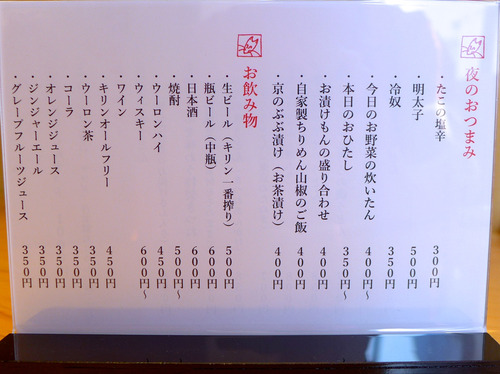 夜のおつまみ
・たこの塩辛 300円
・明太子 500円
・冷奴 350円
・今日のお野菜の炊いたん 400円〜
・本日のおひたし 350円〜
・お漬けもんの盛り合わせ 400円
・自家製ちりめん山椒のご飯 400円
・京のぶぶ漬け(お茶漬け) 400円
お飲み物
・生ビール(キリン一番搾り) 500円
・瓶ビール(中瓶) 600円
・日本酒 600円
・焼酎 500円〜
・ウーロンハイ 450円
・ウィスキー 600円〜
・ワイン
・キリンオールフリー 450円
・ウーロン茶 350円
・コーラ 350円
・オレンジジュース 350円
・ジンジャーエール 350円
・グレープフルーツジュース 350円